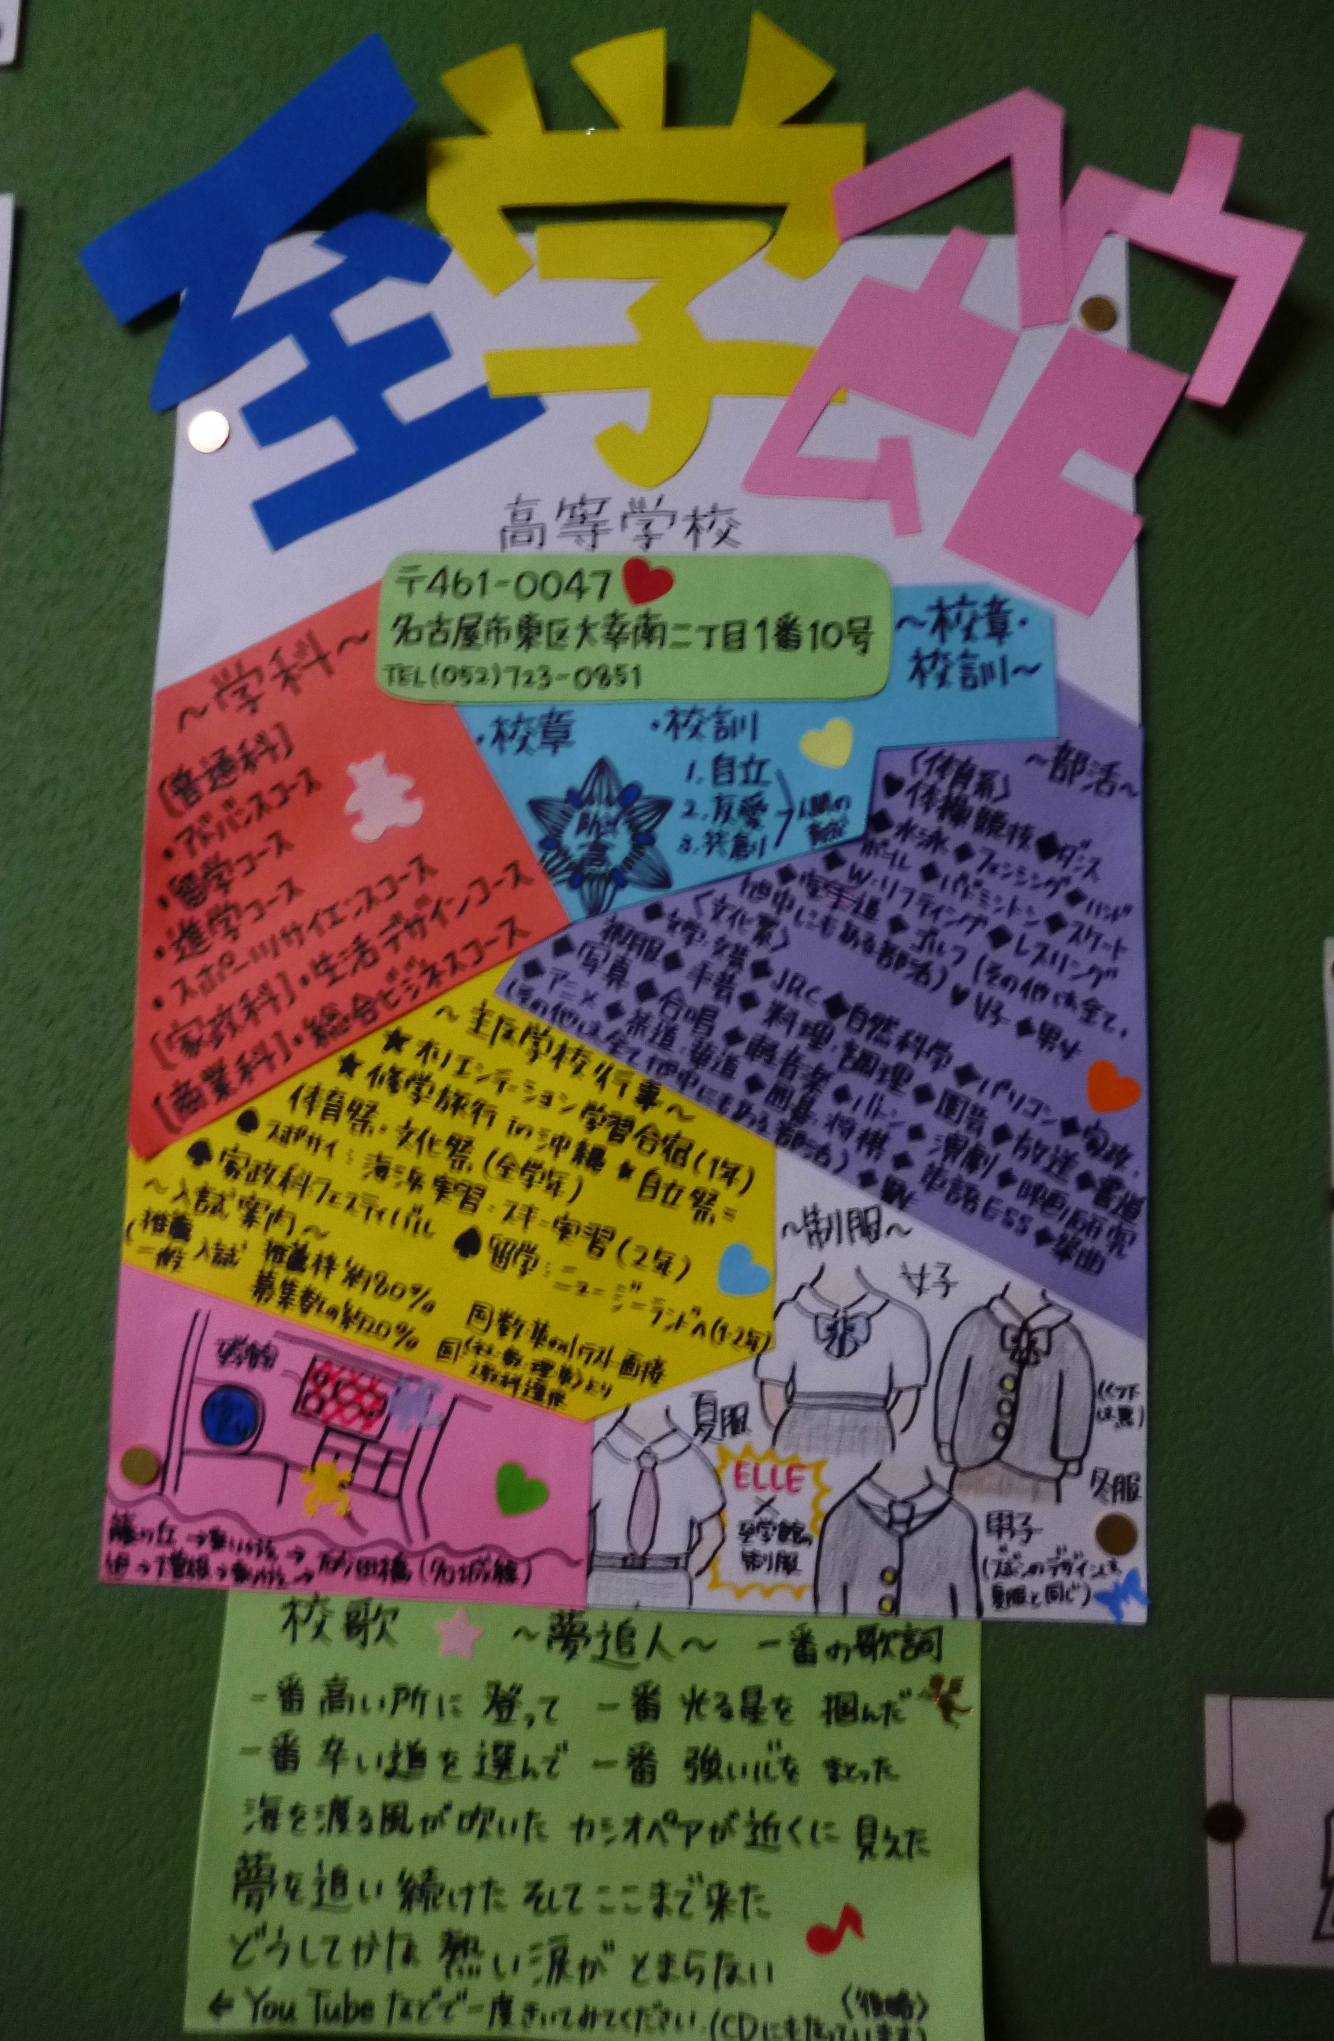 至学館
高等学校
〒461-0047
名古屋市東区大幸南二丁目1番10号
TEL(052)723-0851
~学科~
[普通科]
・アドバンスコース
・留学コース
・進学コース
・スポーツサイエンスコース
[家政科]・生活デザインコース
[商業科]・総合ビジネスコース
~校章・
校訓~
・校章
・校訓
1.自立
2.友愛
3.発創
~部活~
〈体育系〉
♥体操競技◆ダンス
◆水泳◆フェンシング◆ハンド
ボール◆バドミントン◆スケート
◆W・リフティング◆レスリング
◆空手道◆ゴルフ(その他は全て、
他中にもある部活)♥女子◆男女
〈文化系〉
◆文学・文芸◆JRC◆自然科学◆パソコン◆家政・
和服◆手芸◆料理・調理◆園芸◆放送◆書道
◆写真◆合唱◆軽音楽◆バトン◆演劇◆映画研究
◆アニメ◆茶道・華道◆囲碁・将棋◆英語ESS◆箏曲
(その他は全て他中にもある部活)◆男女
~主な学校行事~
★オリエンテーション学習合宿(1年)
★修学旅行in沖縄★自立祭=
体育祭・文化祭(全学年)
♠スポサイ:海浜実習・スキー実習(2年)
♠家政科フェスティバル
♠留学:ニュージーランドへ(1・2年)
~入試案内~
推薦入試 推薦枠約80%
一般 募集数の約20%
~制服~
女子
夏服
(くつ下
は黒)
冬服
ELLE
×
至学館の
制服
男子
(ズボンのデザインも
夏服と同じ)
校歌 ~夢追人~ 一番の歌詞
一番高い所に 登って 一番光る星を 掴んだ
一番辛い道を選んで 一番 強い心を まとった
海を渡る風が吹いた カシオペアが近くに見えた
夢を追い 続けた そしてここまで来た
どうしてかな 熱い涙が とまらない
〈後略〉
← You Tubeなどで一度きいてみてください。(CDにもなっています)